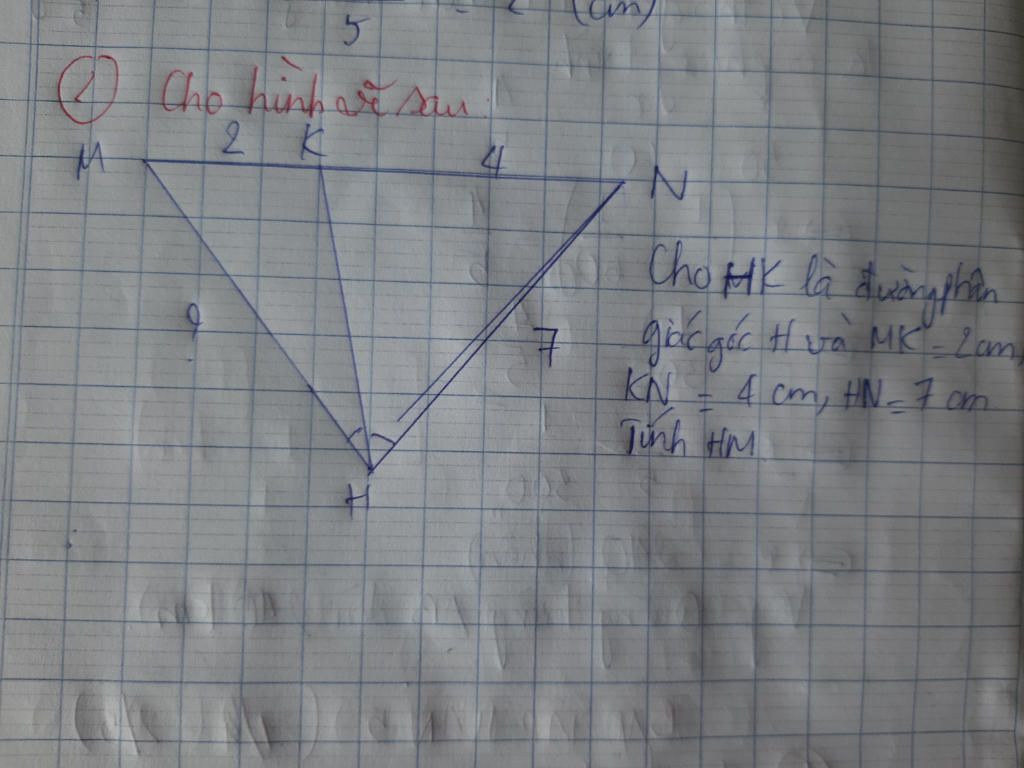 5 = 2 (cm)
2 Cho hình vẽ sau:
M 2 K 4 N
? 7
H
Cho HK là đường phân
giác góc H và MK = 2cm,
KN = 4 cm, HN = 7 cm
Tính HM